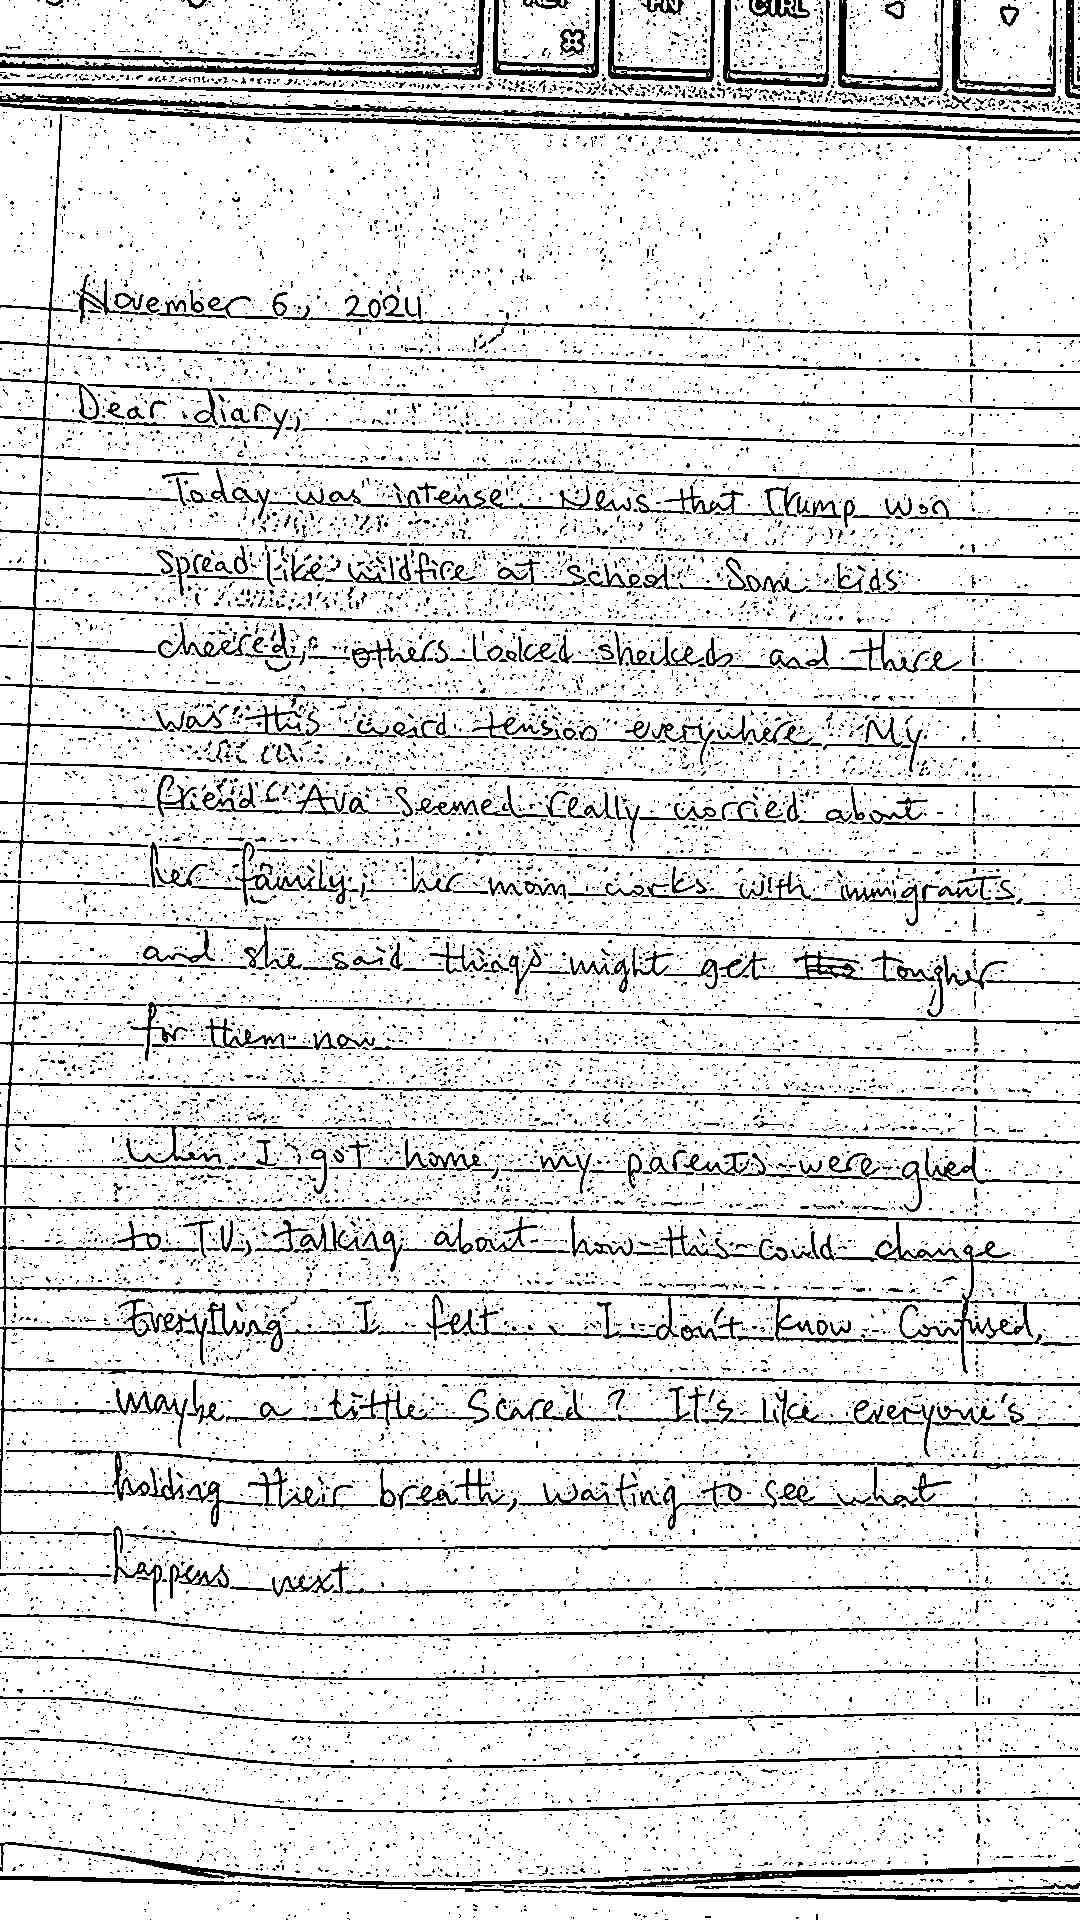 ALT FN CTRL
November 6, 2024
Dear diary,
Today was intense. News that Trump won
spread like wildfire at school. Some kids
cheered, others looked shocked and there
was this weird tension everywhere. My
friend Ava seemed really worried about
her family; her mom works with immigrants,
and she said things might get tougher
for them now.
When I got home, my parents were glued
to TV, talking about how this could change
Everything. I felt... I don't know. Confused,
maybe a little scared? It's like everyone's
holding their breath, waiting to see what
happens next.